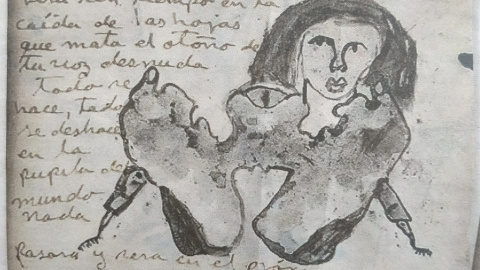 tiempo en la
caída de las hojas
que mata el otoño de
tu voz desnuda
todo se
hace, todo
se deshace
en la
pupila del
mundo
nada
Pasara y sera en el